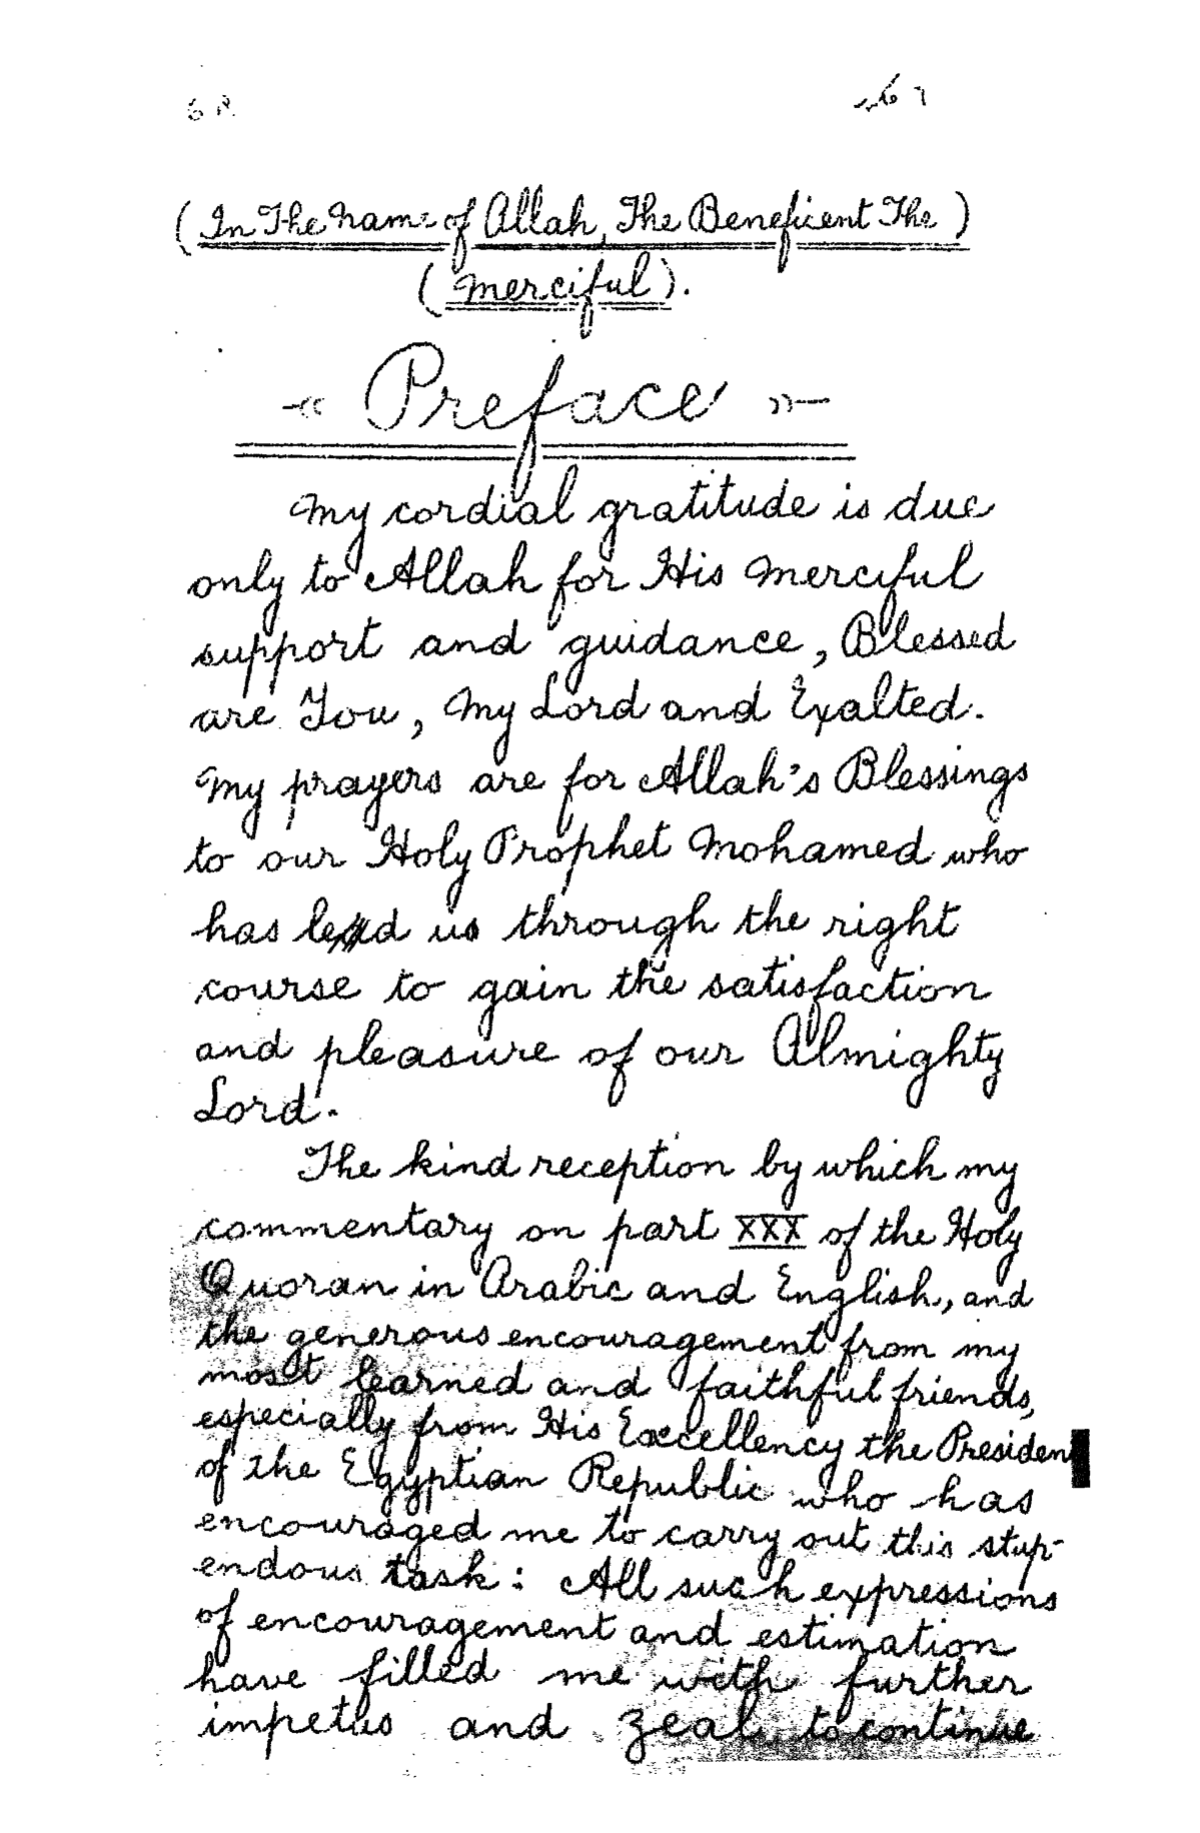 (In The Name of Allah, The Beneficent The)
(Merciful).
Preface
My cordial gratitude is due
only to Allah for His Merciful
support and guidance, Blessed
are You, My Lord and Exalted.
My prayers are for Allah's Blessings
to our Holy Prophet Mohamed who
has led us through the right
course to gain the satisfaction
and pleasure of our Almighty
Lord.
The kind reception by which my
commentary on part XXX of the Holy
Quoran in Arabic and English, and
the generous encouragement from my
most learned and faithful friends,
especially from His Excellency the President
of the Egyptian Republic who has
encouraged me to carry out this stup-
endous task: All such expressions
of encouragement and estimation
have filled me with further
impetus and zeal to continue